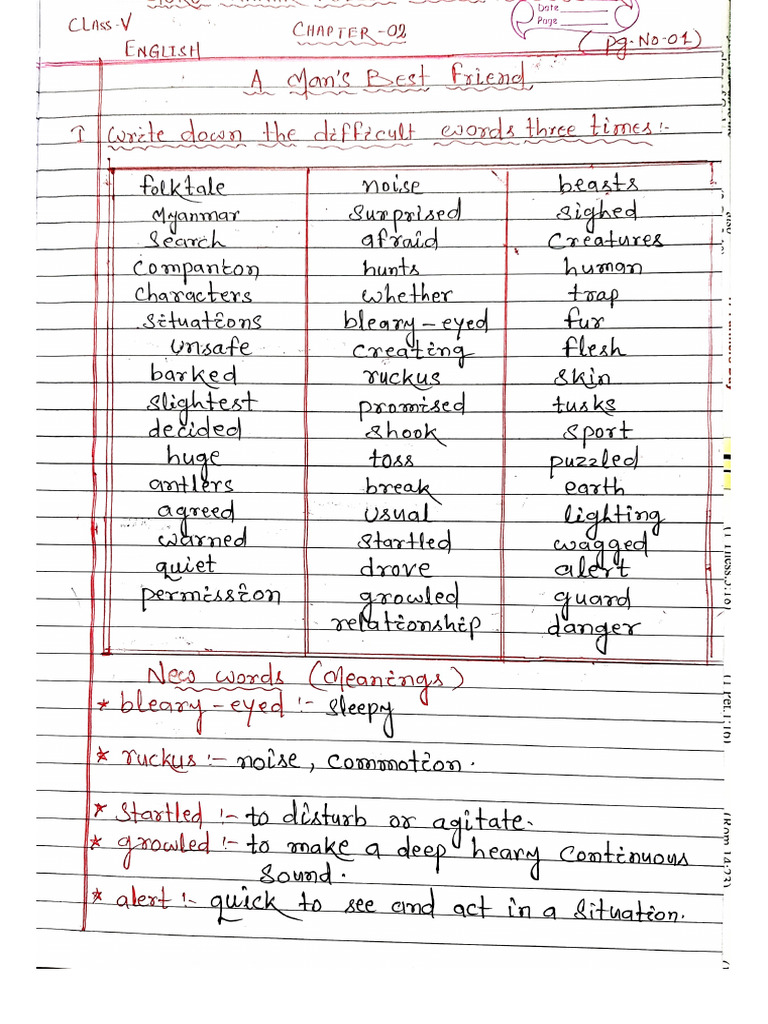 Date
Page
CLASS-V
CHAPTER-02
ENGLISH
(Pg.No-01)
A Man's Best Friend
I Write down the difficult words three times:-
folktale noise beasts
Myanmar Surprised Sighed
Search afraid Creatures
Companion hunts human
Characters whether trap
Situations bleary-eyed fur
Unsafe Creating flesh
barked ruckus skin
Slightest promised tusks
decided shook sport
huge toss puzzled
antlers break earth
agreed usual lighting
warned startled wagged
quiet drove alert
permission growled guard
relationship danger
New words (Meanings)
* bleary-eyed :- Sleepy
* ruckus :- noise, Commotion.
* Startled :- to disturb or agitate.
* growled :- to make a deep heavy continuous
Sound.
* alert :- quick to see and act in a Situation.